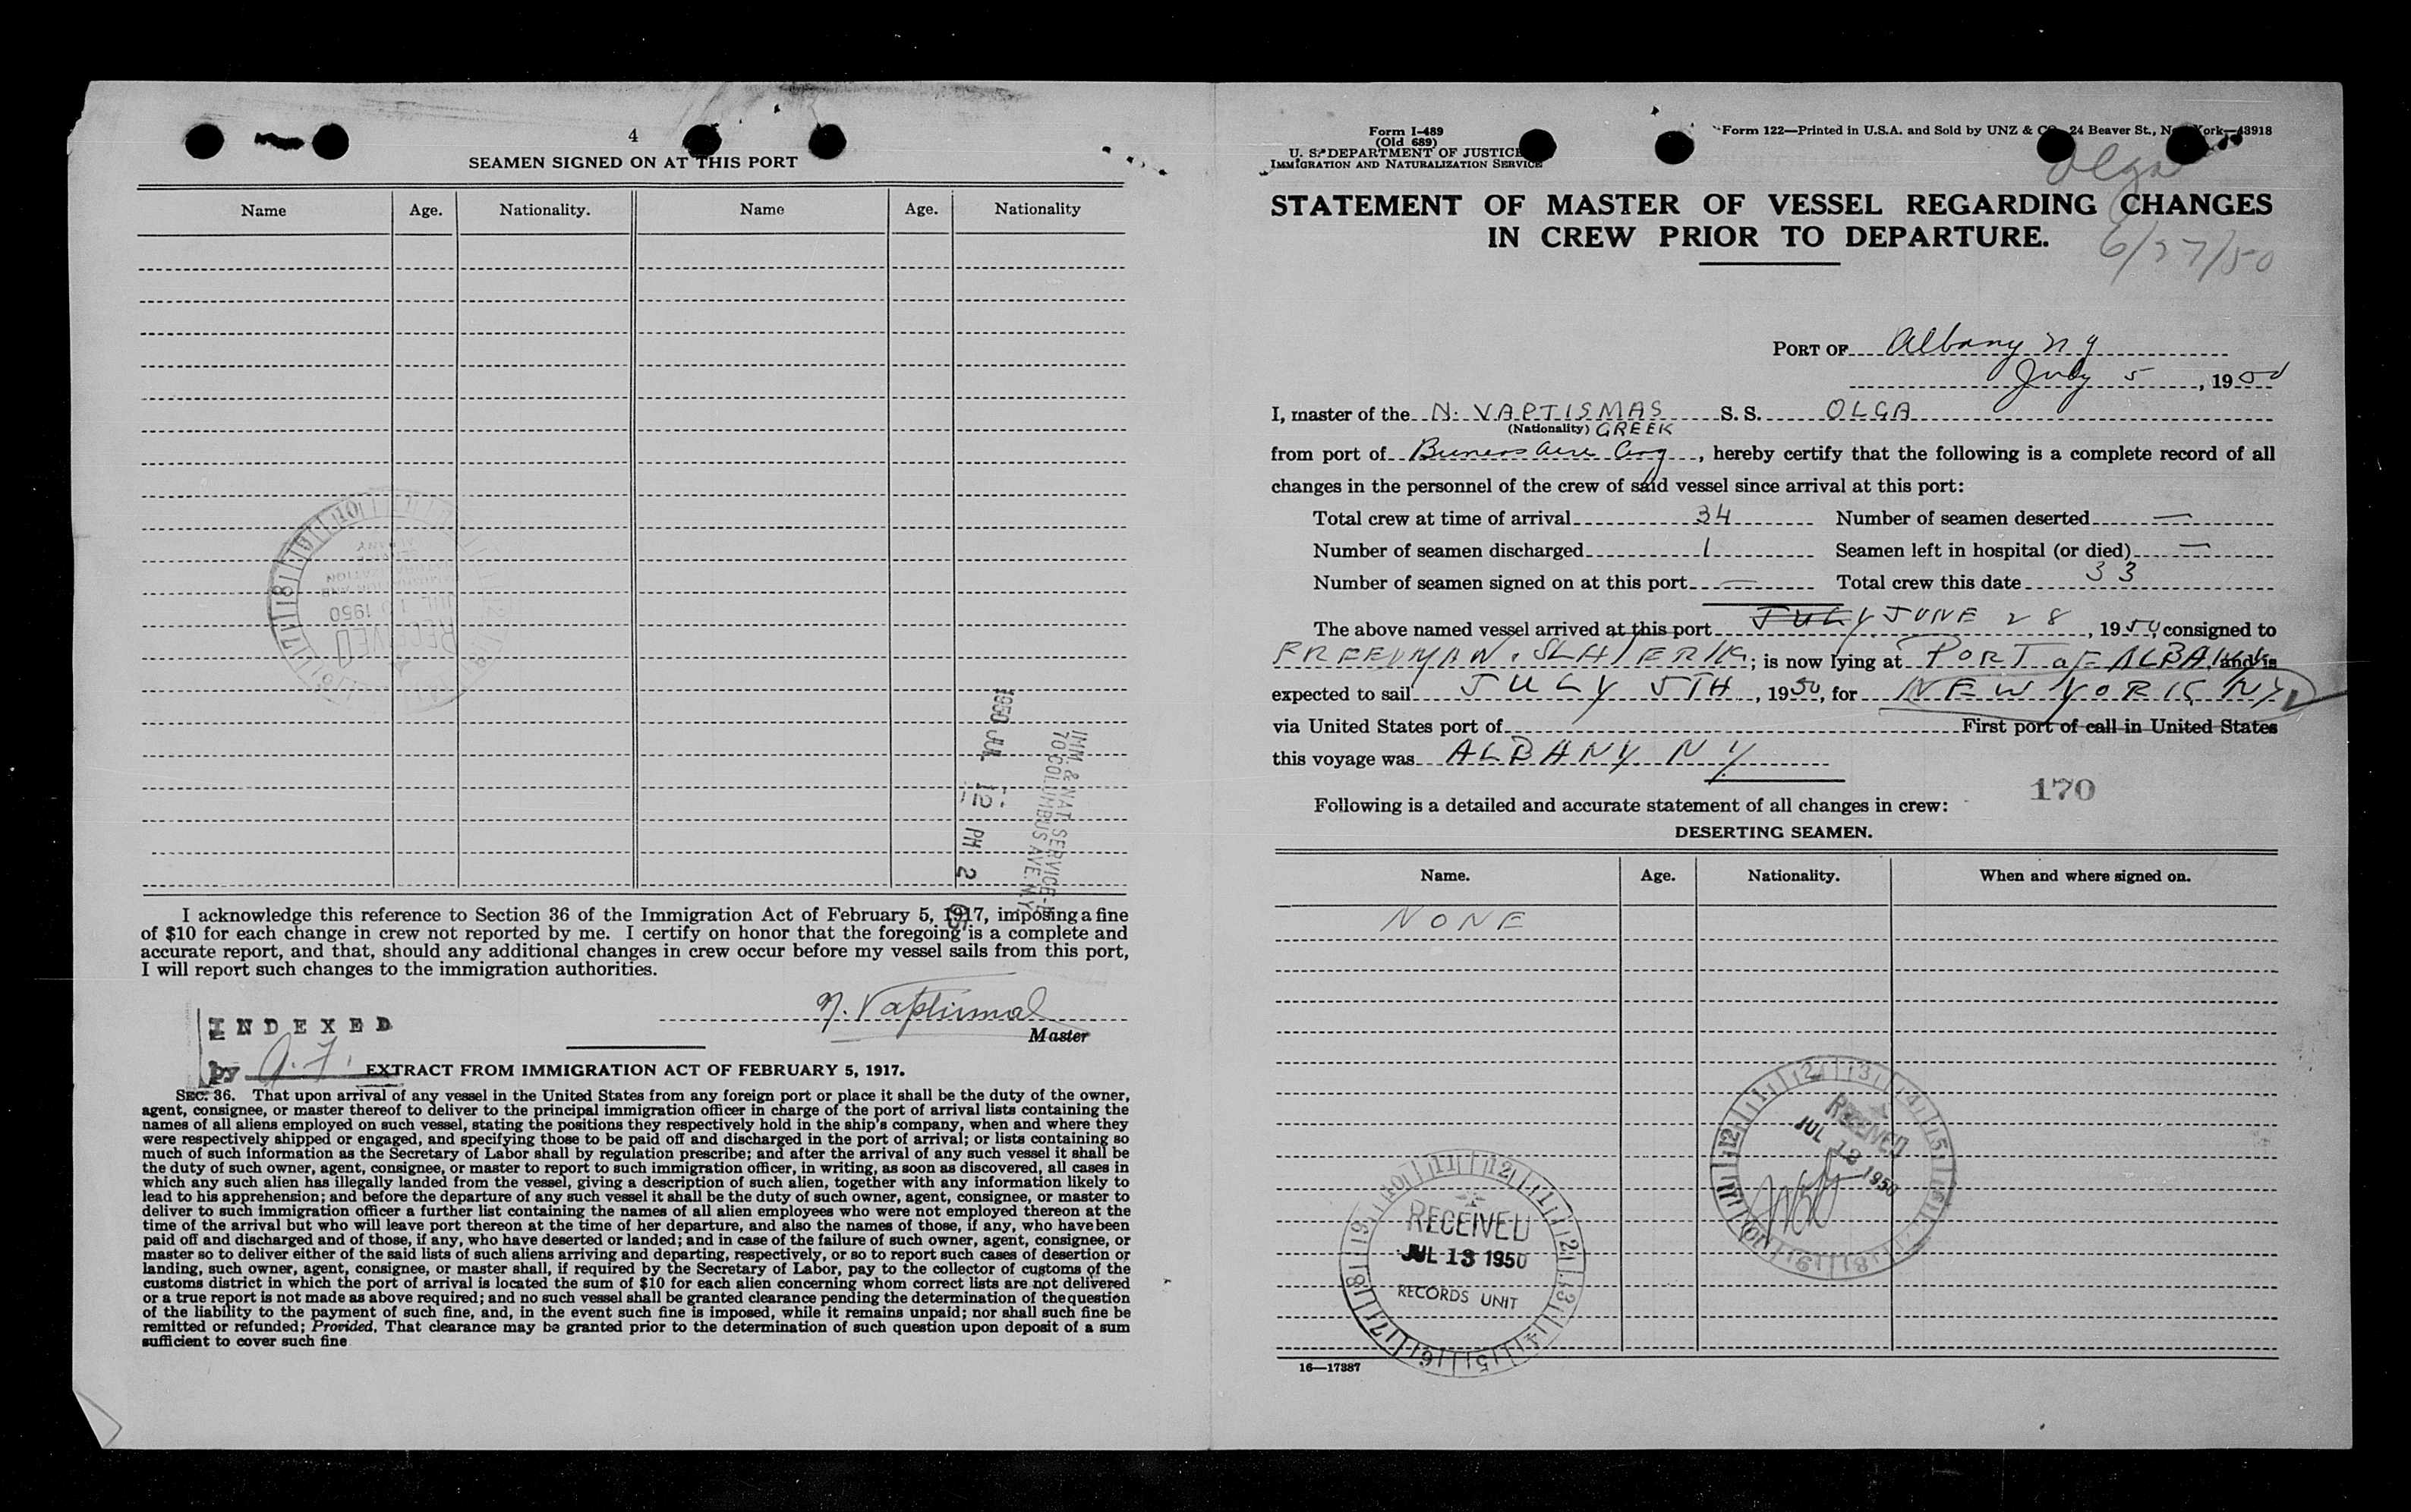 4
SEAMEN SIGNED ON AT THIS PORT
Name Age. Nationality. Name Age. Nationality
RECEIVED
1950
1950 JUL 12 PM 2
IMM & NAT. SERVICE
70 COLUMBUS AVE. N.Y.
I acknowledge this reference to Section 36 of the Immigration Act of February 5, 1917, imposing a fine
of $10 for each change in crew not reported by me. I certify on honor that the foregoing is a complete and
accurate report, and that, should any additional changes in crew occur before my vessel sails from this port,
I will report such changes to the immigration authorities.
N. Vaptismas
Master
INDEXED
by
EXTRACT FROM IMMIGRATION ACT OF FEBRUARY 5, 1917.
SEC. 36. That upon arrival of any vessel in the United States from any foreign port or place it shall be the duty of the owner,
agent, consignee, or master thereof to deliver to the principal immigration officer in charge of the port of arrival lists containing the
names of all aliens employed on such vessel, stating the positions they respectively hold in the ship's company, when and where they
were respectively shipped or engaged, and specifying those to be paid off and discharged in the port of arrival; or lists containing so
much of such information as the Secretary of Labor shall by regulation prescribe; and after the arrival of any such vessel it shall be
the duty of such owner, agent, consignee, or master to report to such immigration officer, in writing, as soon as discovered, all cases in
which any such alien has illegally landed from the vessel, giving a description of such alien, together with any information likely to
lead to his apprehension; and before the departure of any such vessel it shall be the duty of such owner, agent, consignee, or master to
deliver to such immigration officer a further list containing the names of all alien employees who were not employed thereon at the
time of the arrival but who will leave port thereon at the time of her departure, and also the names of those, if any, who have been
paid off and discharged and of those, if any, who have deserted or landed; and in case of the failure of such owner, agent, consignee, or
master so to deliver either of the said lists of such aliens arriving and departing, respectively, or so to report such cases of desertion or
landing, such owner, agent, consignee, or master shall, if required by the Secretary of Labor, pay to the collector of customs of the
customs district in which the port of arrival is located the sum of $10 for each alien concerning whom correct lists are not delivered
or a true report is not made as above required; and no such vessel shall be granted clearance pending the determination of the question
of the liability to the payment of such fine, and, in the event such fine is imposed, while it remains unpaid; nor shall such fine be
remitted or refunded; Provided, That clearance may be granted prior to the determination of such question upon deposit of a sum
sufficient to cover such fine
Form I-489
(Old 689)
U. S. DEPARTMENT OF JUSTICE
IMMIGRATION AND NATURALIZATION SERVICE
Form 122—Printed in U.S.A. and Sold by UNZ & CO. 24 Beaver St., New York—43918
Olga
STATEMENT OF MASTER OF VESSEL REGARDING CHANGES
IN CREW PRIOR TO DEPARTURE.
6/27/50
PORT OF Albany N Y
July 5, 1950
I, master of the N. VAPTISMAS S. S. OLGA
(Nationality) GREEK
from port of Buenos Aire Arg, hereby certify that the following is a complete record of all
changes in the personnel of the crew of said vessel since arrival at this port:
Total crew at time of arrival 34 Number of seamen deserted —
Number of seamen discharged 1 Seamen left in hospital (or died) —
Number of seamen signed on at this port — Total crew this date 33
The above named vessel arrived at this port JULY JUNE 28, 1950, consigned to
FREEDMAN & SLATER INC; is now lying at PORT OF ALBANY and is
expected to sail JULY 5TH, 1950, for NEW YORK NY
via United States port of First port of call in United States
this voyage was ALBANY NY
170
Following is a detailed and accurate statement of all changes in crew:
DESERTING SEAMEN.
Name. Age. Nationality. When and where signed on.
NONE
RECEIVED
JUL 12 1950
RECEIVED
JUL 13 1950
RECORDS UNIT
16—17387